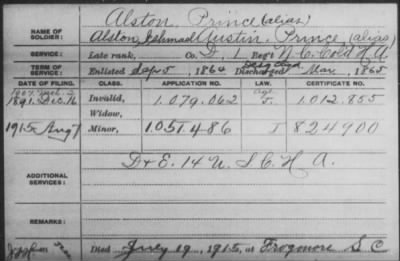 Alston, Prince (alias)
NAME OF SOLDIER: Alston, Ishmael Austin, Prince (alias)
SERVICE: Late rank, Co. D, 1 Reg't N.C. Cold H.A.
TERM OF SERVICE: Enlisted Sep 5, 1864 Discharged Mar, 1865
DATE OF FILING. CLASS. APPLICATION NO. LAW. CERTIFICATE NO.
1891. Dec. 16 Invalid, 1.079.062 J. 1.012.855
Widow,
1915 Aug 7 Minor, 1.051.486 J 824900
ADDITIONAL SERVICES: D & E. 14 U.S.C.H.A.
REMARKS:
Died July 19, 1915, at Frogmore S C